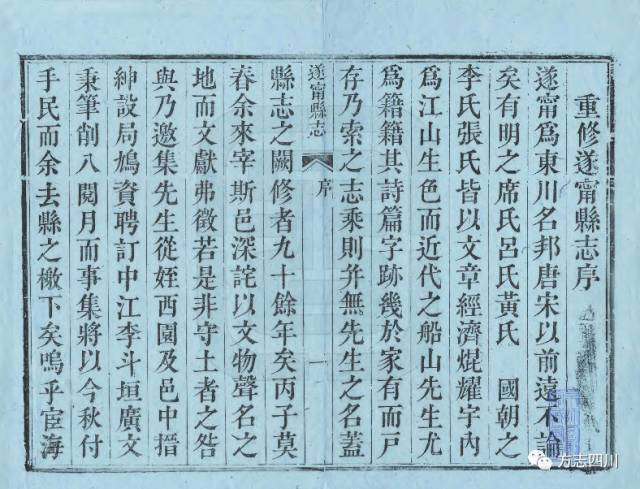 重修遂甯縣志序
遂甯為東川名邦唐宋以前遠不論
矣有明之席氏呂氏黃氏　國朝之
李氏張氏皆以文章經濟焜耀宇內
為江山生色而近代之船山先生尤
為籍籍其詩篇字跡幾於家有而戶
存乃索之志乘則并無先生之名蓋
遂甯縣志　序　一
縣志之闕修者九十餘年矣丙子莫
春余來宰斯邑深詫以文物聲名之
地而文獻弗徵若是非守土者之咎
與乃邀集先生從姪西園及邑中搢
紳設局鳩資聘訂中江李斗垣廣文
秉筆削八閱月而事集將以今秋付
手民而余去縣之檄下矣嗚乎宦海
方志四川